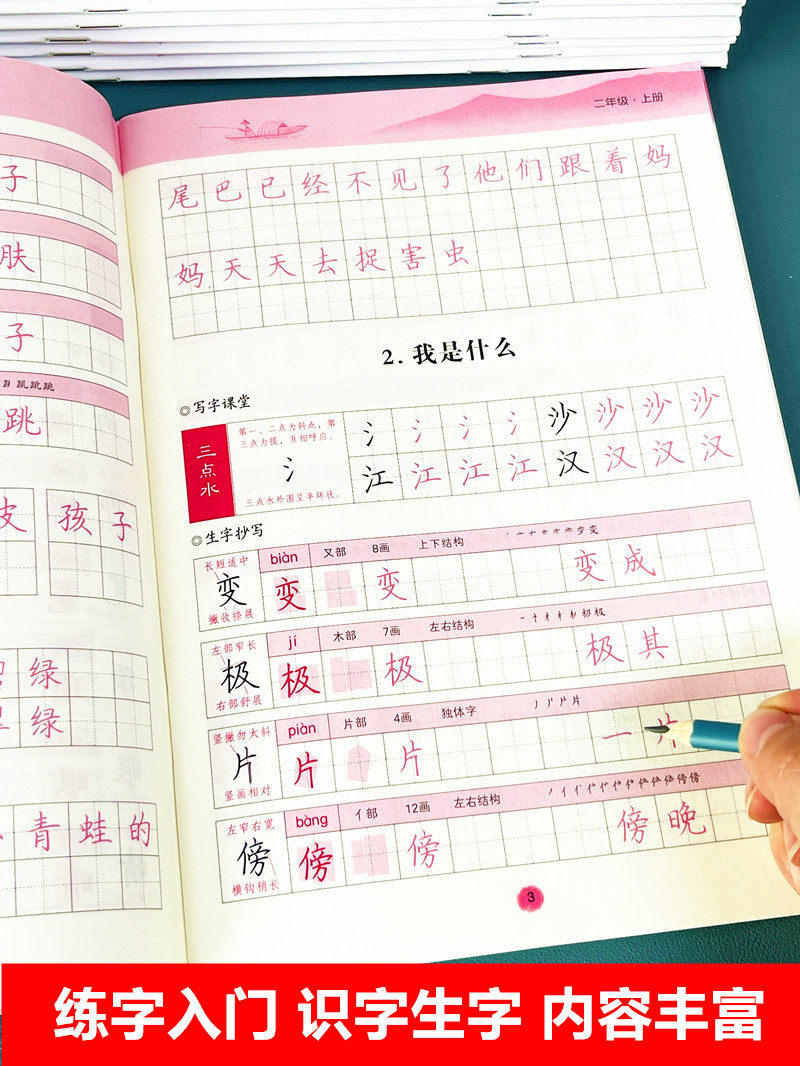 子
肤
子
跳跳跳
跳
皮 孩子
绿
绿
青蛙的
二年级·上册
尾巴已经不见了他们跟着妈
妈天天去捉害虫
2.我是什么
◎写字课堂
三点水
第一、二点为斜点,第
三点为提,互相呼应。
氵
三点水外围呈半环状。
氵氵氵氵沙沙沙沙
江江江江汉汉汉汉
◎生字抄写
长短适中
变
撇收捺展
biàn 又部 8画 上下结构
变 变 变成
左部窄长
极
右部舒展
jí 木部 7画 左右结构
极 极 极其
竖撇勿太斜
片
竖画相对
piàn 片部 4画 独体字
片 片 一片
左窄右宽
傍
横钩稍长
bàng 亻部 12画 左右结构
傍 傍 傍晚
3
练字入门 识字生字 内容丰富